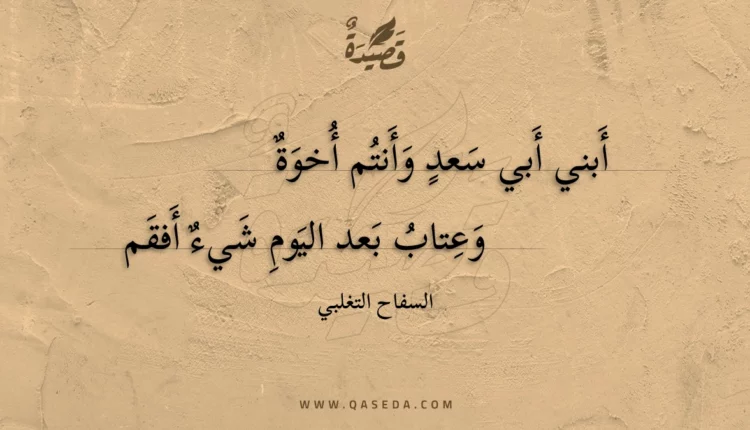 قَصِيدَةٌ
أَبني أَبي سَعدٍ وَأَنتُم أُخوَةٌ
وَعِتابُ بَعد اليَومِ شَيءٌ أَفقَم
السفاح التغلبي
WWW.QASEDA.COM